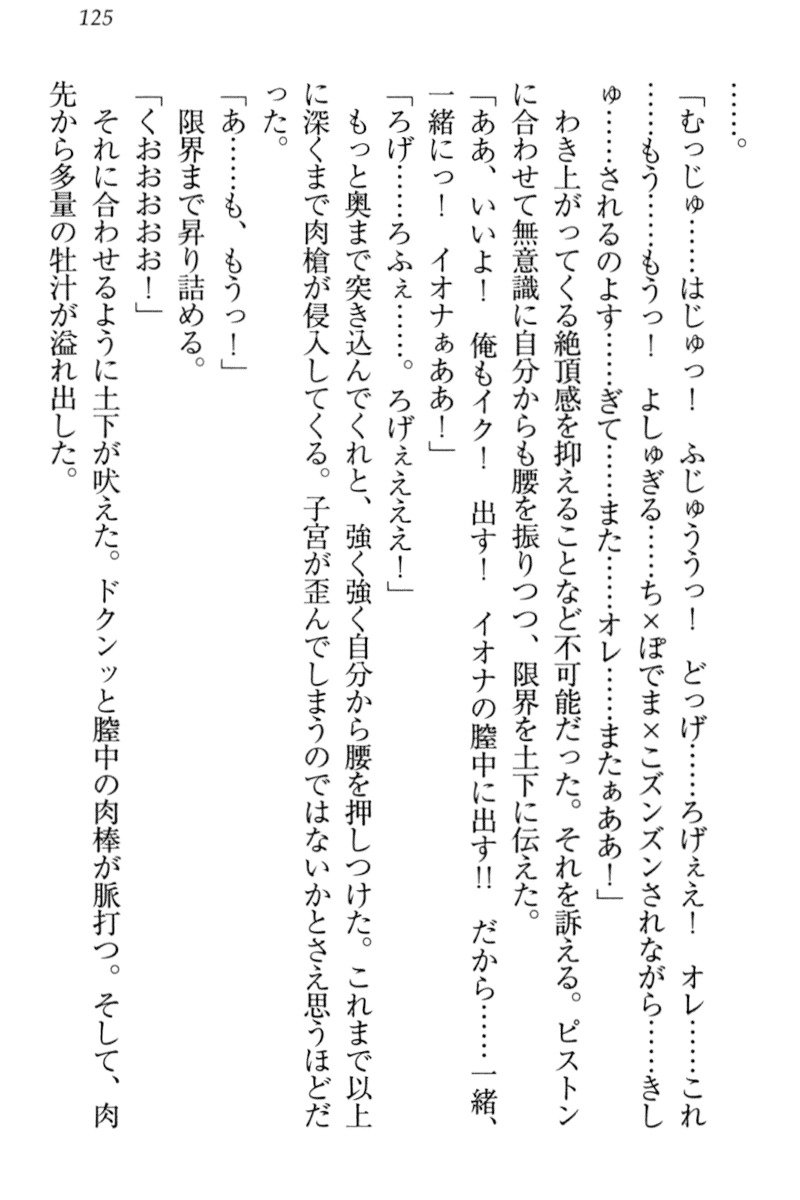 125
……。
「むっじゅ……はじゅっ！　ふじゅううっ！　どっげ……ろげぇえ！　オレ……これ
……もう……もうっ！　よしゅぎる……ち×ぽでま×こズンズンされながら……きし
ゅ……されるのよす……ぎて……また……オレ……またぁああ！」
　わき上がってくる絶頂感を抑えることなど不可能だった。それを訴える。ピストン
に合わせて無意識に自分からも腰を振りつつ、限界を土下に伝えた。
「ああ、いいよ！　俺もイク！　出す！　イオナの膣中に出す!!　だから……一緒、
一緒にっ！　イオナぁああ！」
「ろげ……ろふぇ……。ろげぇえええ！」
　もっと奥まで突き込んでくれと、強く強く自分から腰を押しつけた。これまで以上
に深くまで肉槍が侵入してくる。子宮が歪んでしまうのではないかとさえ思うほどだ
った。
「あ……も、もうっ！」
　限界まで昇り詰める。
「くおおおおお！」
　それに合わせるように土下が吠えた。ドクンッと膣中の肉棒が脈打つ。そして、肉
先から多量の牡汁が溢れ出した。